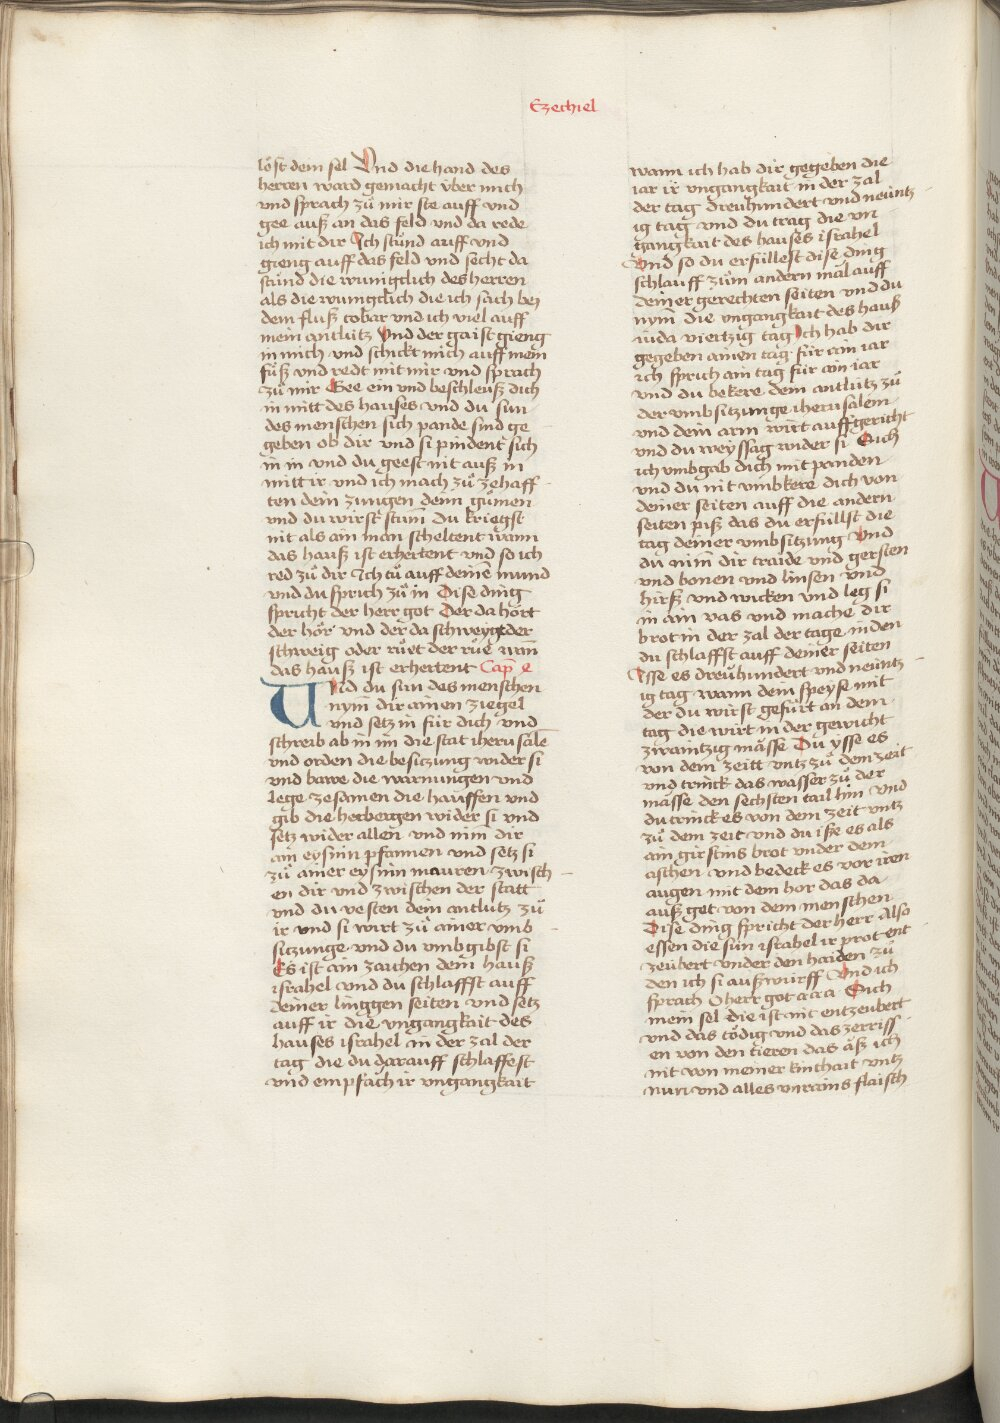 Ezechiel
löst dein sel Vnd die hand des
herren ward gemacht über mich
vnd sprach zů mir ste auff vnd
gee auß an das feld vnd da rede
ich mit dir Ich stůnd auff vnd
gieng auff das feld vnd secht da
stůnd die wunigclich des herren
als die wunigclich die ich sach bey
dem fluß cobar vnd ich viel auff
mein antlütz Vnd der gaist gieng
in mich vnd schickt mich auff mein
füß vnd redt mit mir vnd sprach
zů mir Gee ein vnd beschleuß dich
in mitt des hauses vnd du sun
des menschen sich pande sind ge
geben ob dir vnd si pindent sich
in in vnd du geest nit auß in
mitt ir vnd ich mach zů zehaff
ten dein zungen deim gůmen
vnd du wirst stum̄ du kriegst
nit als ain man scheltent wann
das hauß ist erhertent vnd so ich
red zů dir Ich tů auff deinē mund
vnd du sprich zů in Dise ding
spricht der herr got Der da hört
der hör vnd der da schweygt der
schweig oder růet der růe wan̄
das hauß ist erhertent Cap̄ e
Vnd du sun des menschen
nym dir ainen ziegel
vnd setz in für dich vnd
schreib ab in im die stat iherusalē
vnd orden die besiczung wider si
vnd bawe die warnungen vnd
lege zesamen die hauffen vnd
gib die herbergen wider si vnd
setz wider allen vnd nim dir
ain eysnin pfannen vnd setz si
zů ainer eysnin mauren zwisch
en dir vnd zwischen der statt
vnd du vesten dein antlutz zů
ir vnd si wirt zů ainer vmb
siczunge vnd du vmbgibst si
Es ist ain zaichen dem hauß
israhel vnd du schlaffst auff
deiner linggen seiten vnd setz
auff ir die vngangkait des
hauses israhel in der zal der
tag die du darauff schlaffest
vnd empfach ir vngangkait
wann ich hab dir gegeben die
iar ir vngangkait in der zal
der tag dreuhundert vnd neüntz
ig tag vnd du trag die vn
gangkait des hauses israhel
Vnd so du erfüllest dise ding
schlauff zům andern mal auff
deiner gerechten seiten vnd du
nym̄ die vngangkait des hauß
iuda viertzig tag Ich hab dir
gegeben ainen tag für ain iar
ich sprich ain tag für ain iar
vnd du bekere dein antlütz zů
der vmbsitzunge iherusalem
vnd dein arm wirt auffgericht
vnd du weyssag wider si Sich
ich vmbgab dich mit panden
vnd du nit vmbkere dich von
deiner seiten auff die andern
seiten piß das du erfüllst die
tag deiner vmbsitzung Vnd
du nim̄ dir traide vnd gersten
vnd bonen vnd linsen vnd
hirß vnd wicken vnd leg si
in ain vas vnd mache dir
brot in der zal der tage in den
du schlaffst auff deiner seiten
Isse es dreuhundert vnd neüntz
ig tag wann dein speyse mit
der du wirst gefůrt an dem
tag die wirt in der gewicht
zwaintzig mässe Du ysse es
von dem zeitt vntz zů dem zeit
vnd trinck das wasser zů der
masse den sechsten tail hin vnd
du trinck es von dem zeit vntz
zů dem zeit vnd du iße es als
ain girstins brot vnder dem
aschen vnd bedeck es vor iren
augen mit dem hor das da
auß get von dem menschen
Dise ding spricht der herr Also
essen die sün israhel ir prot ent
zeübert vnder den haiden zů
den ich si außwürff Vnd ich
sprach O herr got a a a Sich
mein sel die ist nit entzeubert
vnd das tödig vnd das zerriss
en von den tieren das äß ich
nit von meiner kinthait vntz
nun vnd alles vnrains flaisch